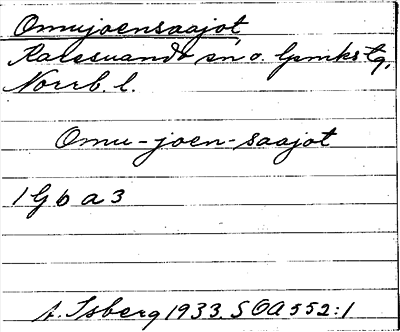 Omujoensaajot,
Karesuando sn o. lpmkstg,
Norrb. l.
Omu-joen-saajot
1 G b a 3
A. Isberg 1933. SOA 552:1